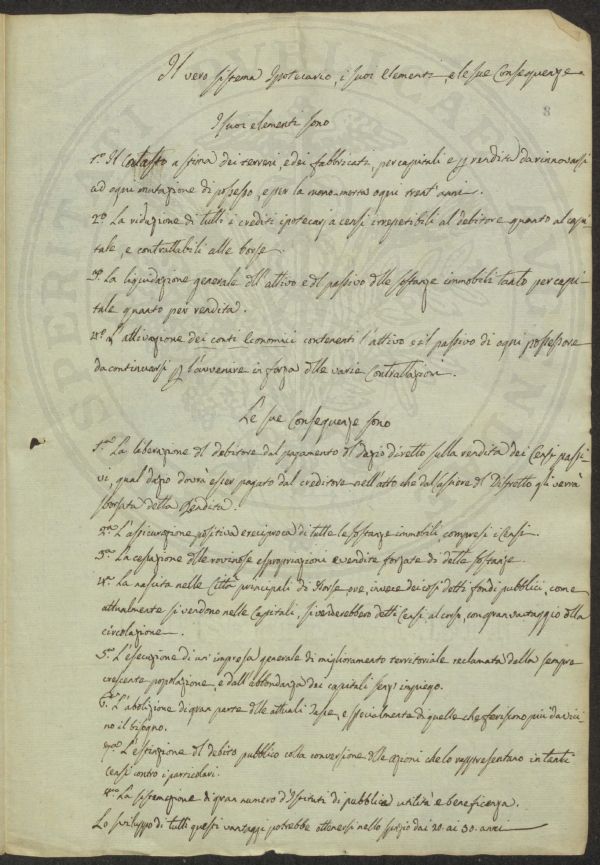 Il vero sistema Ipotecario, i suoi Elementi, e le sue Conseguenze
8
I suoi elementi sono
1º Il Catasto a stima dei terreni, e dei fabbricati, per capitali e pr rendite da rinnovarsi
ad ogni mutazione di possesso, e per la mano-morta ogni trent'anni.
2º La riduzione di tutti i crediti ipotecarj a censi irrepetibili al debitore quanto al capi-
tale, e contrattabili alle borse
3º La liquidazione generale dell'attivo e del passivo delle sostanze immobili tanto per capi-
tale quanto per rendita.
4º L'attivazione dei conti Economici contenenti l'attivo e il passivo di ogni possessore
da continuarsi pr l'avvenire in forza delle varie Contrattazioni.
Le sue Conseguenze sono
1ma La liberazione del debitore dal pagamento del dazio diretto sulla rendita dei Censi passi-
vi, qual dazio dovrà esser pagato dal creditore nell'atto che dal Cassiere del Distretto gli verrà
sborsata della Rendita.
2da L'assicurazione positiva e reciproca di tutte le sostanze immobili compresi i Censi
3za La cessazione delle rovinose espropriazioni e vendite forzate di dette Sostanze
4ta La nascita nelle Città principali di Borse ove, invece dei così detti fondi pubblici, come
attualmente si vendono nelle Capitali, si venderebbero detti Censi al corso, con gran vantaggio della
circolazione
5ta L'esecuzione di un'impresa generale di miglioramento territoriale reclamata dalla sempre
crescente popolazione, e dall'abbondanza dei capitali senz'impiego.
6ta L'abolizione di gran parte delle attuali Tasse, e specialmente di quelle che feriscono più da vici-
no il bisogno.
7ma L'estinzione del debito pubblico colla conversione delle azioni che lo rappresentano in tanti
censi contro i particolari.
8va La sistemazione di gran numero d'Istituti di pubblica utilità e beneficenza.
Lo sviluppo di tutti questi vantaggi potrebbe ottenersi nello spazio dai 20. ai 30. anni